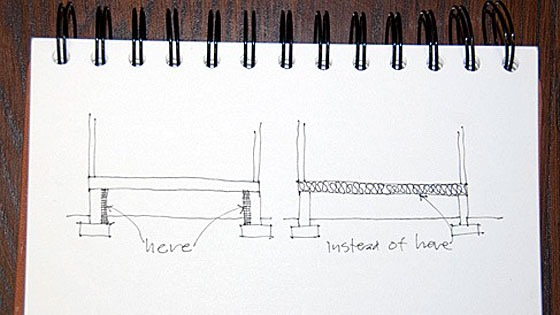 here
instead of here